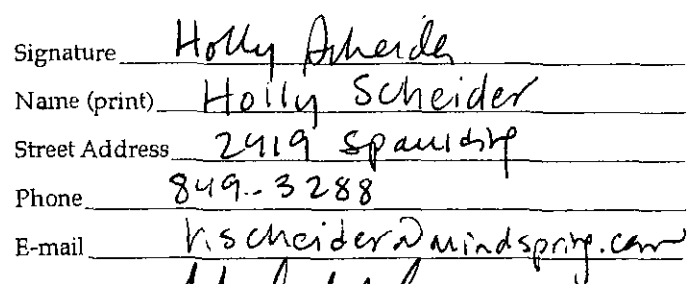 Signature Holly Scheider
Name (print) Holly Scheider
Street Address 2419 Spaulding
Phone 849-3288
E-mail h.scheider@mindspring.com